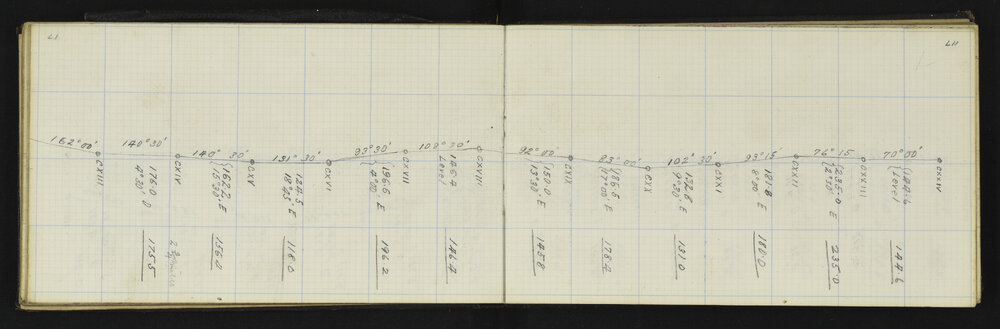 LI
162°00'
140°30'
140° 30'
131°30'
93°30'
108°30'
CXIII
CXIV
CXV
CXVI
CXVII
CXVIII
176.0 D
4°30'
162.2 E
15°30'
124.5 E
18°45'
196.6 E
4°00'
146.4
Level
175.5
156.0
118.0
196.2
146.4
LII
92°00'
83°00'
102°30'
93°15'
76°15
70°00'
CXIX
CXX
CXXI
CXXII
CXXIII
CXXIV
150.0 E
13°30'
186.5 E
17°00'
132.6 E
9°30'
181.8 E
8°00
235.0 E
144.6
Level
145.8
178.4
131.0
180.0
235.0
144.6